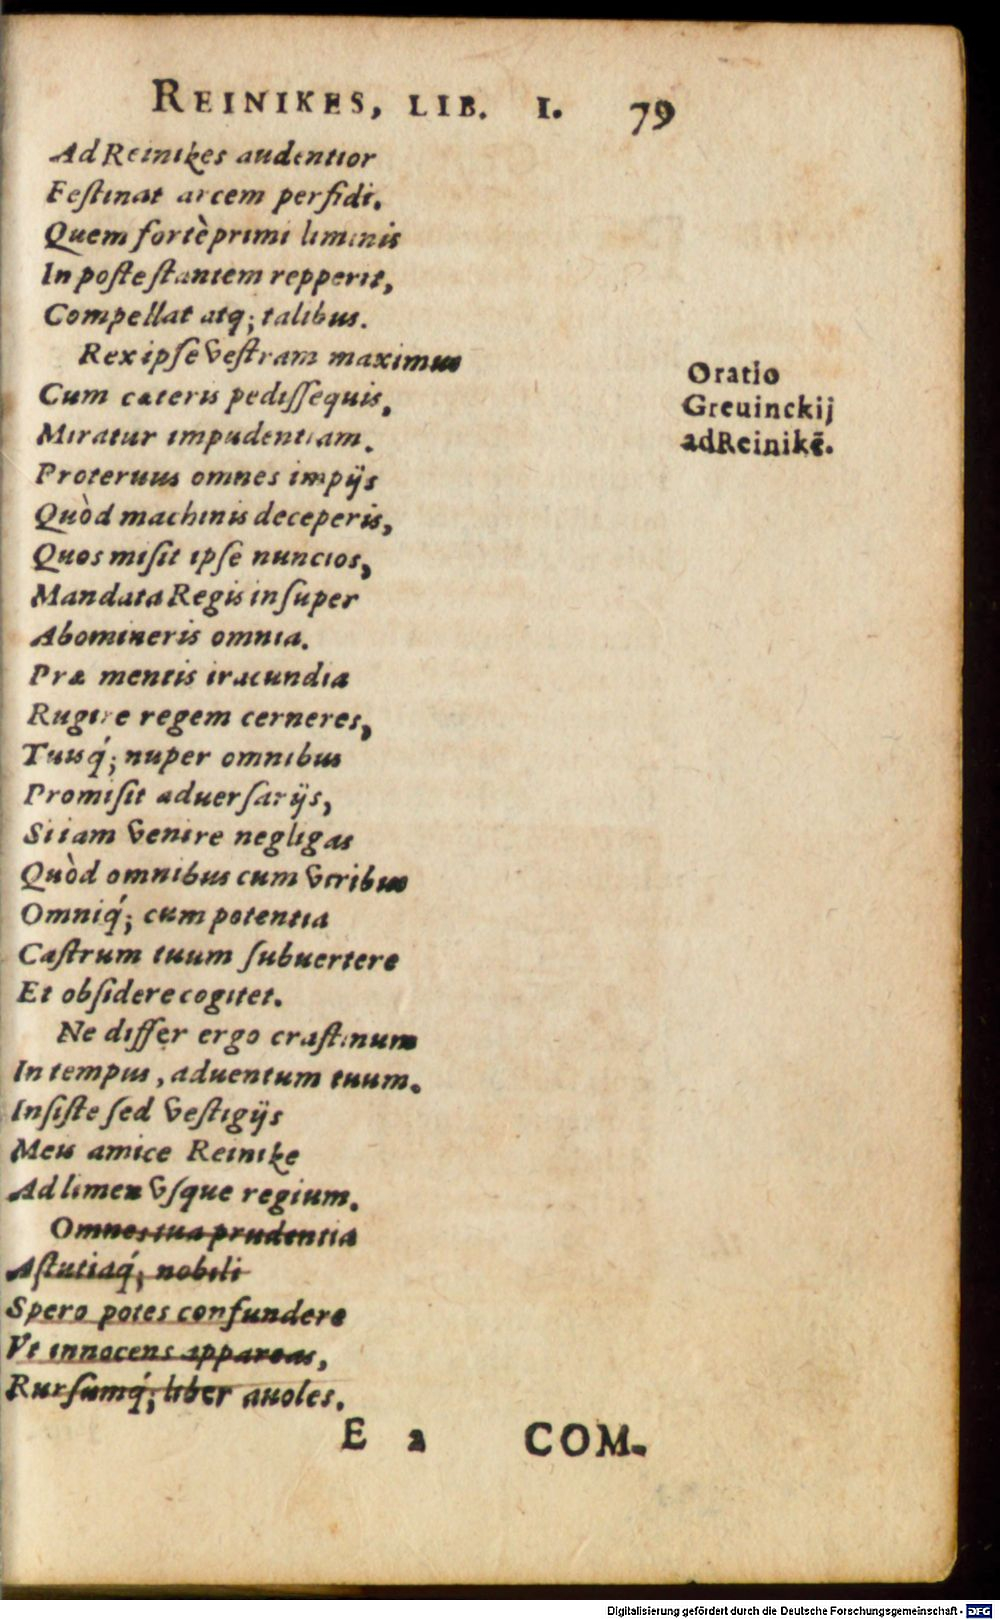 REINIKES, LIB. I. 79
Ad Reinikes audentior
Festinat arcem perfidi.
Quem fortè primi liminis
In poste stantem repperit,
Compellat atq; talibus.
Rex ipse vestram maximus
Cum cæteris pedissequis,
Miratur impudentiam.
Proteruus omnes impijs
Quòd machinis deceperis,
Quos misit ipse nuncios,
Mandata Regis insuper
Abomineris omnia.
Præ mentis iracundia
Rugire regem cerneres,
Tuisq́; nuper omnibus
Promisit aduersarijs,
Si iam venire negligas
Quòd omnibus cum viribus
Omniq́; cum potentia
Castrum tuum subuertere
Et obsidere cogitet.
Ne differ ergo crastinum
In tempus, aduentum tuum.
Insiste sed vestigijs
Meis amice Reinike
Ad limen vsque regium.
Omnes tua prudentia
Astutiaq́; nobili
Spero potes confundere
Vt innocens appareas,
Rursumq́; liber auoles.
Oratio
Greuinckij
ad Reinikē.
E a COM-
Digitalisierung gefördert durch die Deutsche Forschungsgemeinschaft - DFG